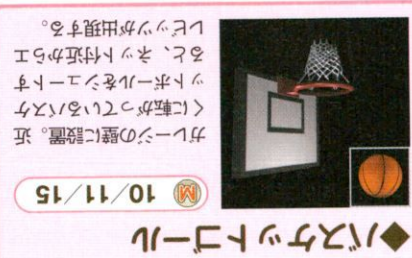 ◆バスケットゴール
M 10/11/15
ガレージの壁に設置。近
くに転がっているバスケ
ットボールをシュートす
ると、ネット付近からエ
レビッツが出現する。